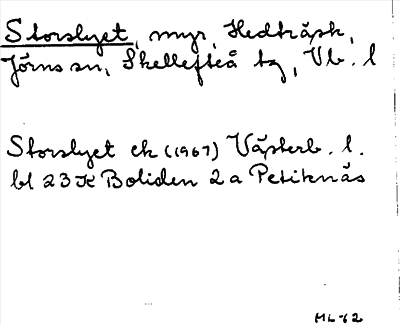 Storslyet, myr, Hedträsk,
Jörns sn, Skellefteå tg, Vb. l
Storslyet ek (1967) Västerb. l.
bl 23 K Boliden 2 a Petiknäs
ML-62